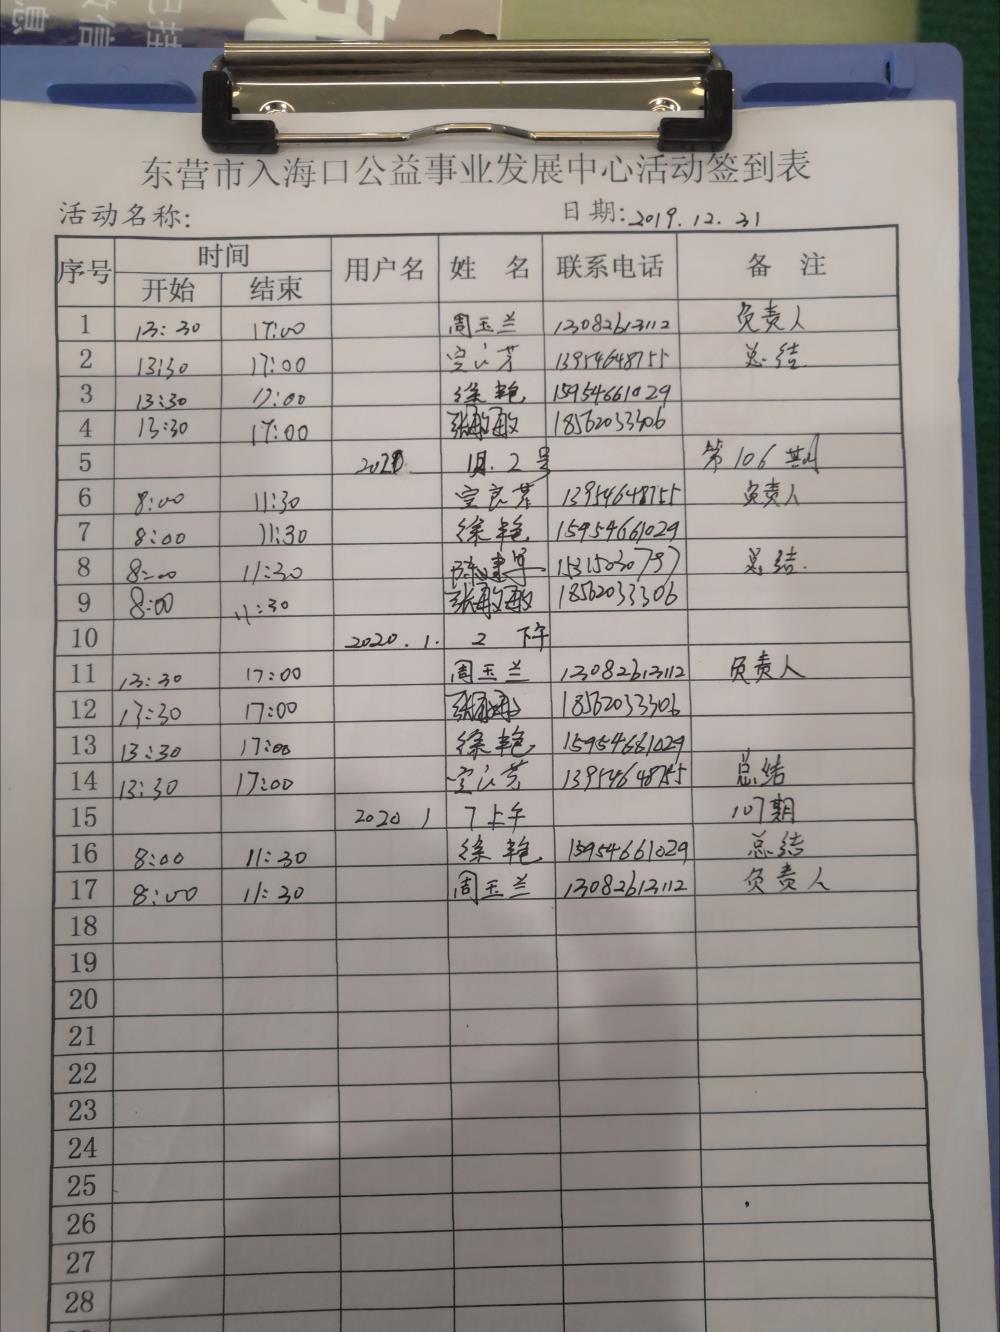 东营市入海口公益事业发展中心活动签到表
活动名称: 日期:2019.12.31
序号 时间 用户名 姓名 联系电话 备注
开始 结束
1 13:30 17:00 周玉兰 13082613112 负责人
2 13:30 17:00 芳 13954648755 总结.
3 13:30 17:00 徐艳 15954661029
4 13:30 17:00 张敏敏 18562033306
5 1月.2号 第106期
6 8:00 11:30 13954648755 负责人
7 8:00 11:30 徐艳 15954661029
8 8:00 11:30 总结.
9 8:00 11:30 张敏敏 18562033306
10 2020.1. 2 下午
11 13:30 17:00 周玉兰 13082613112 负责人
12 13:30 17:00 张敏敏 18562033306
13 13:30 17:00 徐艳 15954661029
14 13:30 17:00 芳 13954648755 总结
15 2020 1 7上午 107期
16 8:00 11:30 徐艳 15954661029 总结
17 8:00 11:30 周玉兰 13082613112 负责人
18
19
20
21
22
23
24
25
26
27
28